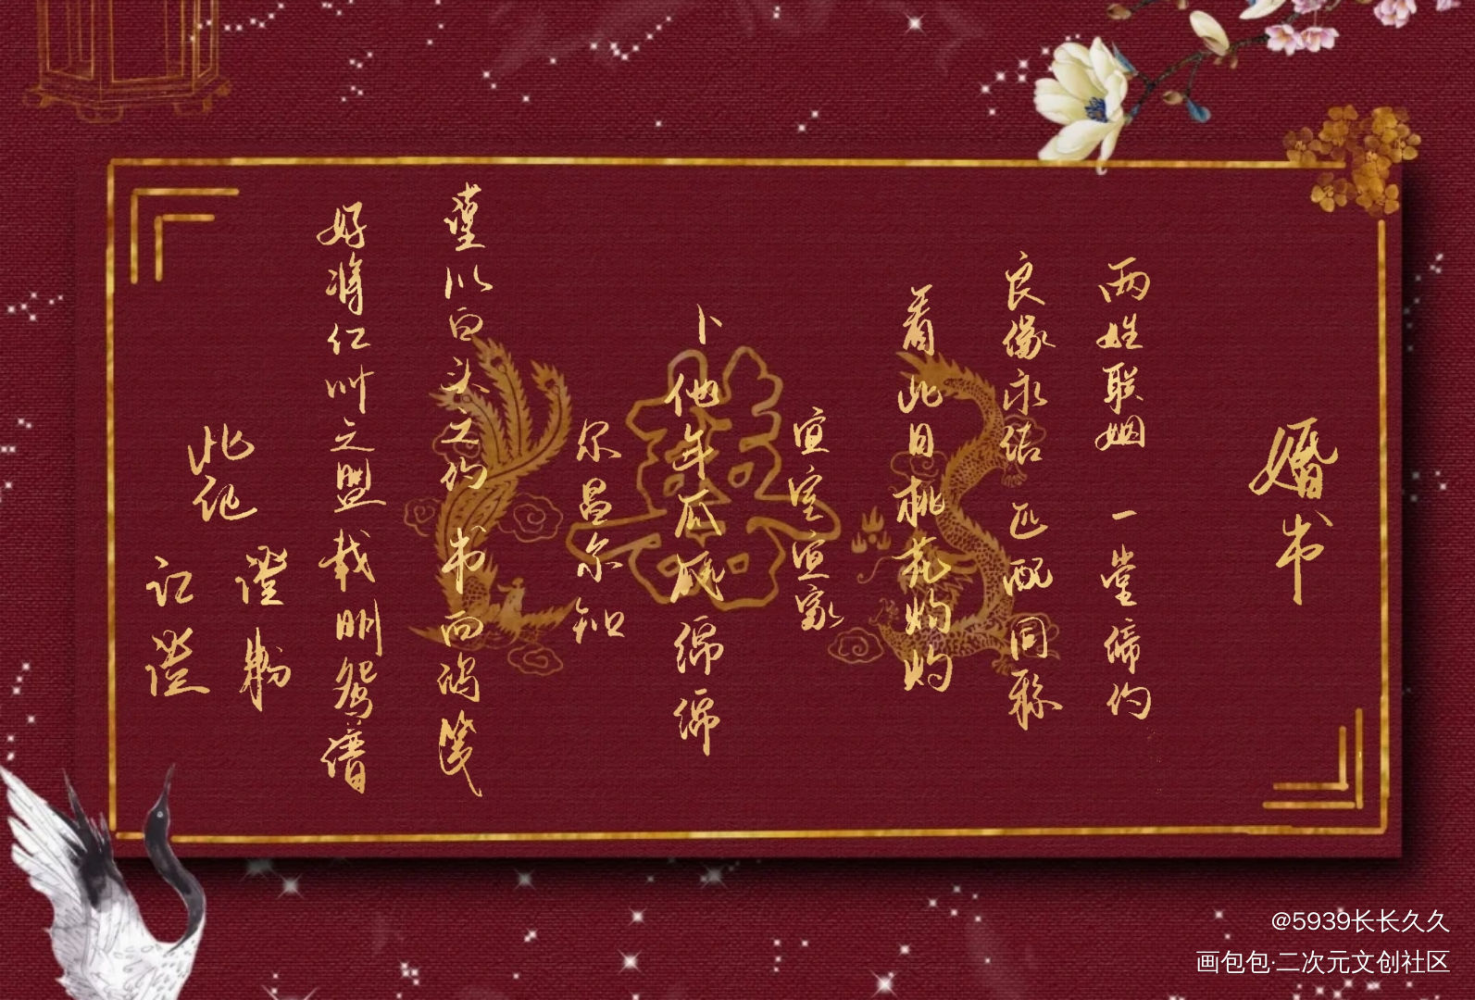 婚书
两姓联姻 一堂缔约
良缘永结 匹配同称
看此日桃花灼灼
宜室宜家
卜他年瓜瓞绵绵
尔昌尔炽
谨以白头之约 书向鸿笺
好将红叶之盟 载明鸳谱
此
@5939长长久久
画包包·二次元文创社区